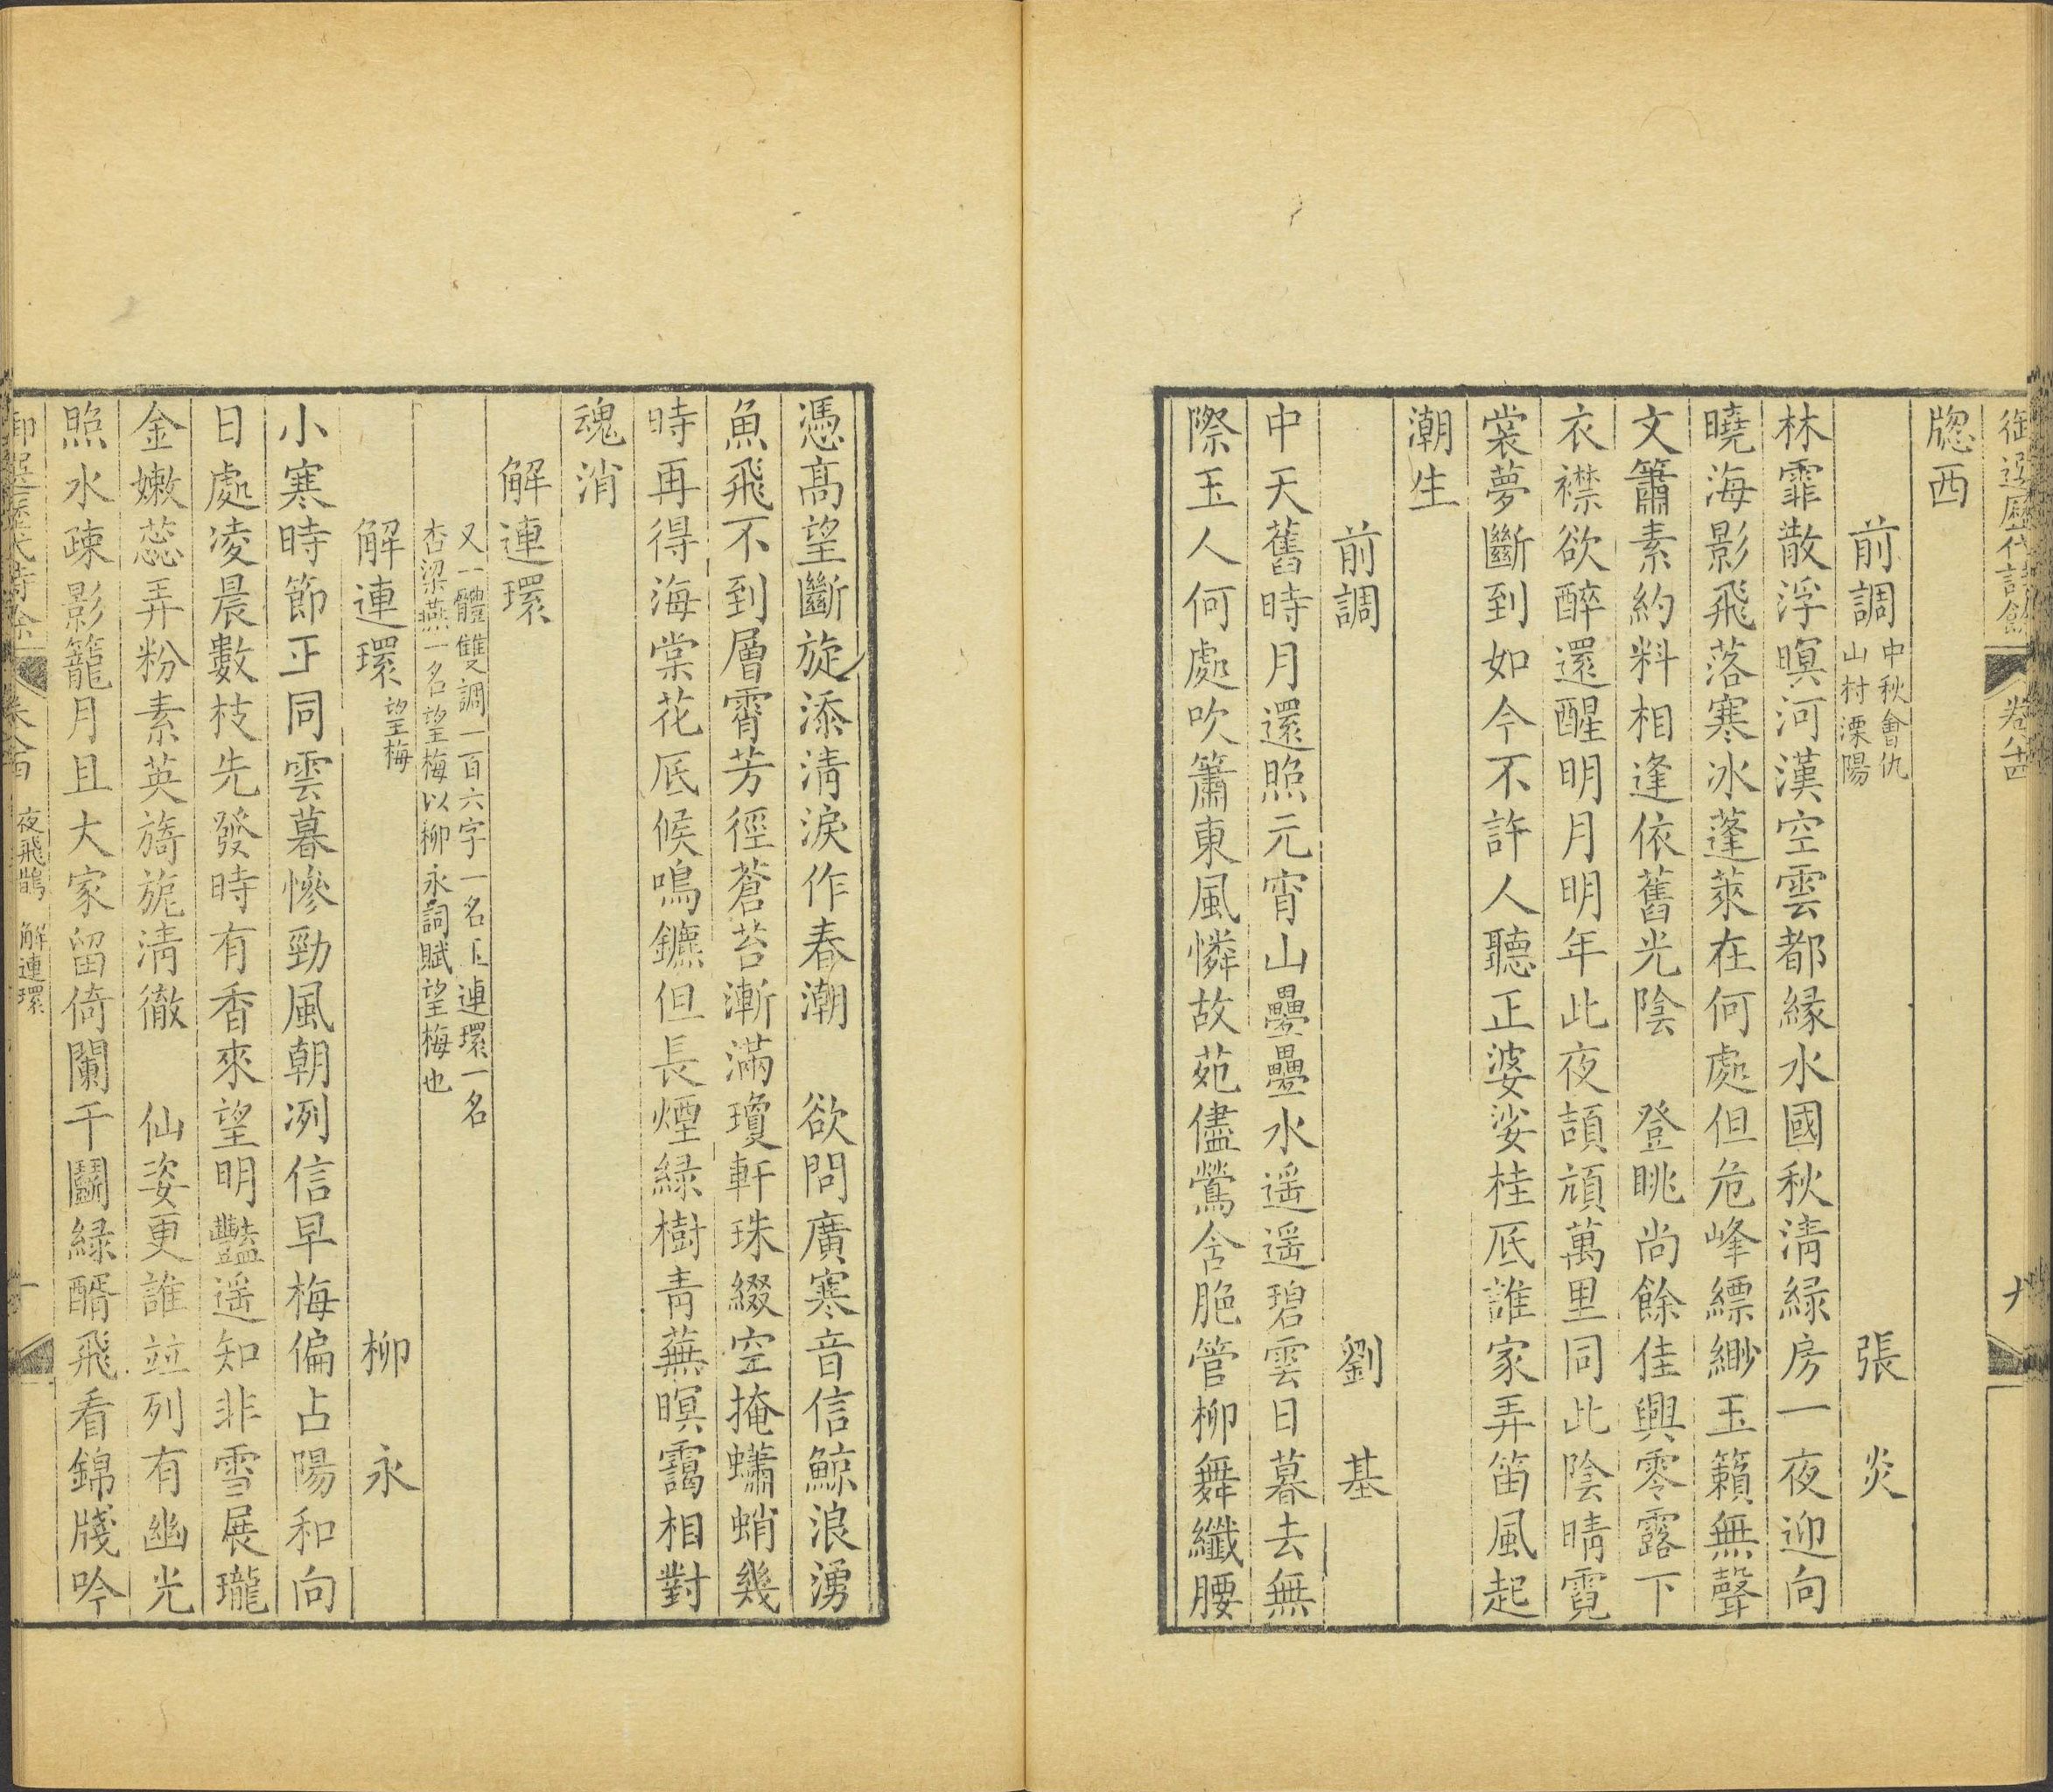 御選歷代詩餘 卷八十四 九
牕西
前調 中秋會仇山村溧陽 張炎
林霏散浮暝河漢空雲都緣水國秋淸綠房一夜迎向
曉海影飛落寒冰蓬萊在何處但危峰縹緲玉籟無聲
文簫素約料相逢依舊光陰 登眺尚餘佳興零露下
衣襟欲醉還醒明月明年此夜頡頏萬里同此陰晴霓
裳夢斷到如今不許人聽正婆娑桂底誰家弄笛風起
潮生
前調 劉基
中天舊時月還照元宵山疊疊水遥遥碧雲日暮去無
際玉人何處吹簫東風憐故苑儘鶯含脆管柳舞纖腰
憑高望斷旋添淸淚作春潮 欲問廣寒音信鯨浪湧
魚飛不到層霄芳徑蒼苔漸滿瓊軒珠綴空掩蠨蛸幾
時再得海棠花底候鳴鑣但長煙綠樹靑蕪暝靄相對
魂消
解連環
又一體雙調一百六字一名玉連環一名
杏梁燕一名望梅以柳永詞賦望梅也
解連環 望梅 柳永
小寒時節正同雲暮慘勁風朝冽信早梅偏占陽和向
日處凌晨數枝先發時有香來望明豔遥知非雪展瓏
金嫩蕊弄粉素英旖旎淸徹 仙姿更誰並列有幽光
照水疎影籠月且大家留倚闌干鬭綠醑飛看錦牋吟
御選歷代詩餘 卷八十四 夜飛鵲 解連環 十